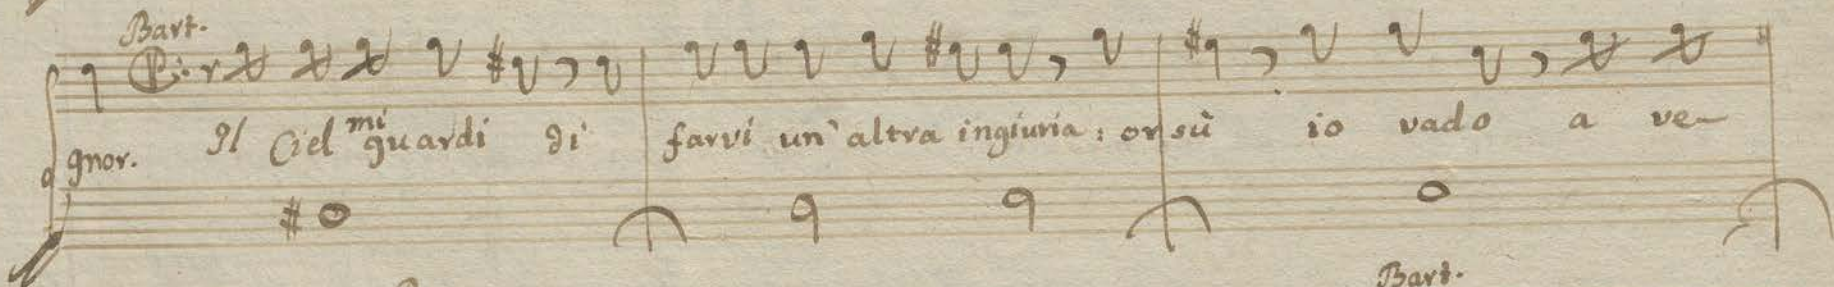 Bart.
gnor. Il Ciel mi guardi di farvi un' altra ingiuria: or sù io vado a ve-
Bart.